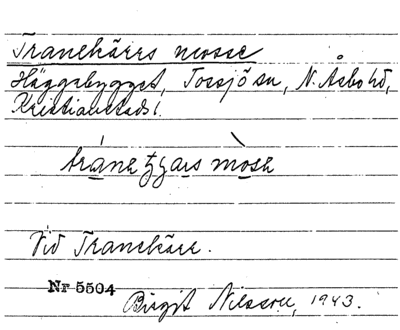 Tranekärrs mosse
Häggebygget, Tossjö sn, N. Åsbo hd,
Kristianstads l.
mòsh
Vid Tranekärr.
Nr 5504
Birgit Nilsson, 1943.